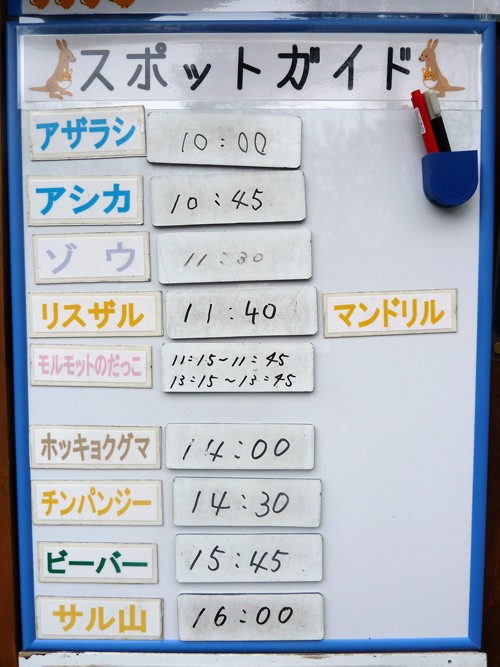 スポットガイド
アザラシ 10:00
アシカ 10:45
ゾウ 11:30
リスザル 11:40 マンドリル
モルモットのだっこ 11:15~11:45
13:15~13:45
ホッキョクグマ 14:00
チンパンジー 14:30
ビーバー 15:45
サル山 16:00